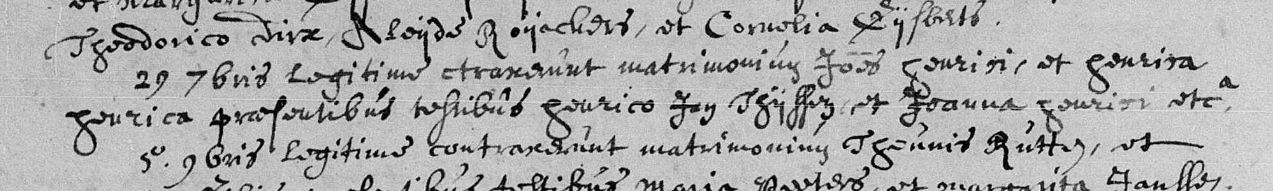 et Marga
Theodorico Dirx, Aleijde Roijackers, et Cornelia Gijsberts.
29 7bris legitime ctraxerunt matrimonium Joes henrici, et henrica
henrica præsentibus testibus henrico Jan Thijssen, et Joanna henrici etc.
5º. 9bris legitime contraxerunt matrimonium Theunis Rutten, et
testibus maria Peeters, et margarita Janssen.